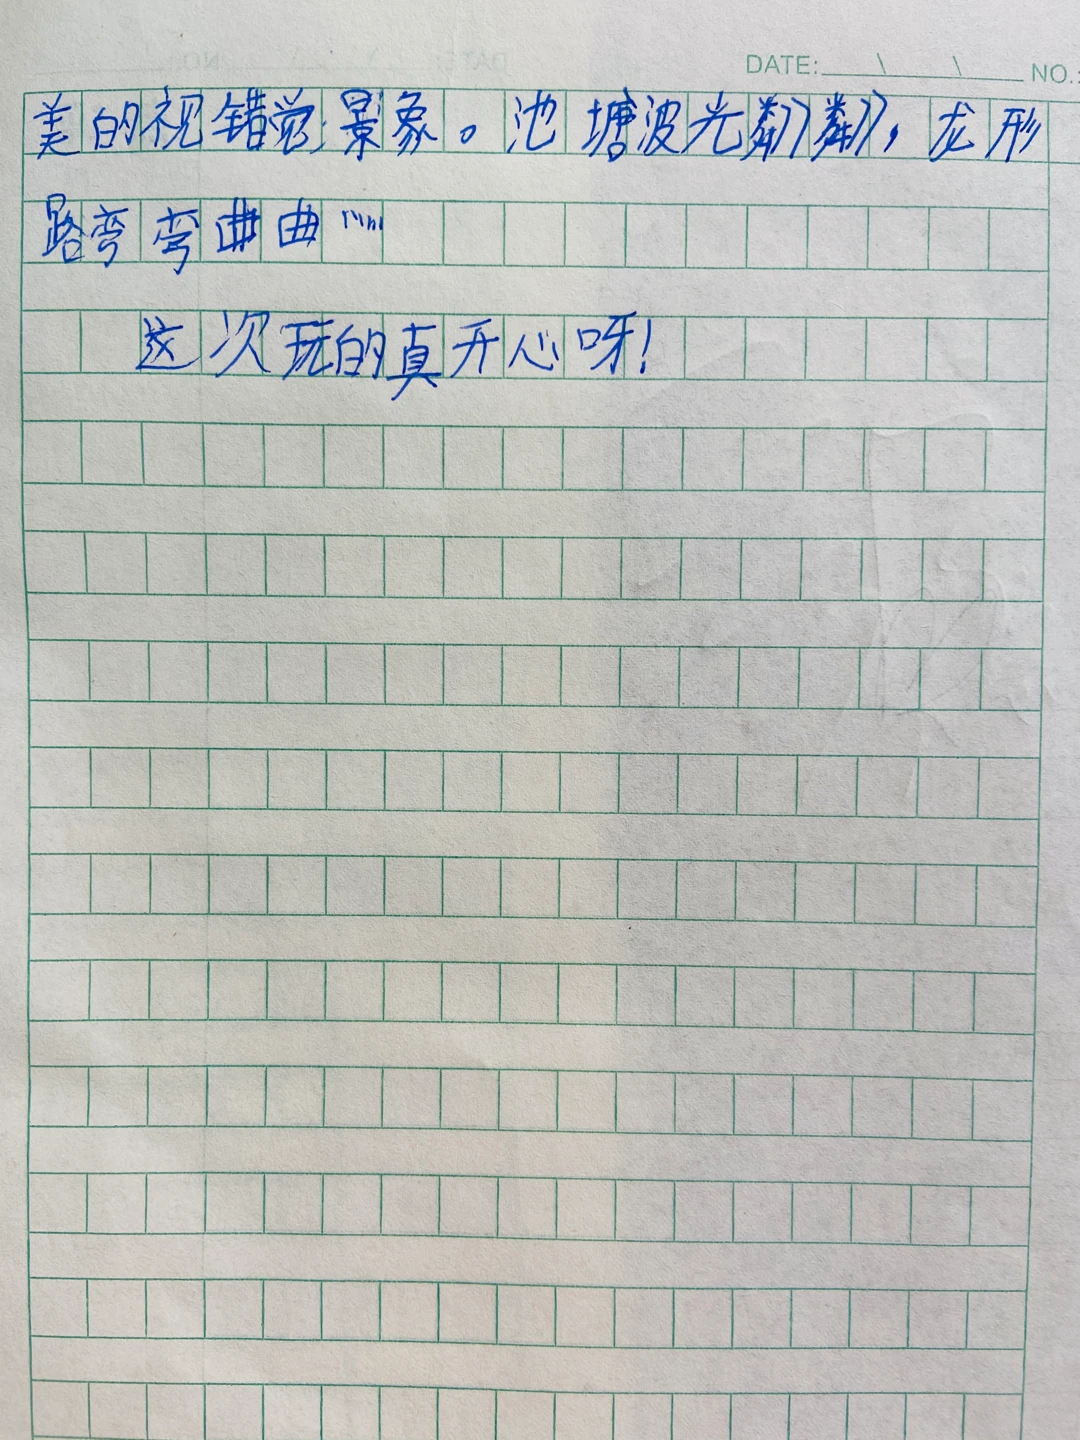 DATE: \ \ NO.:
美的视错觉景象。池塘波光粼粼，龙形
路弯弯曲曲……
这次玩的真开心呀！